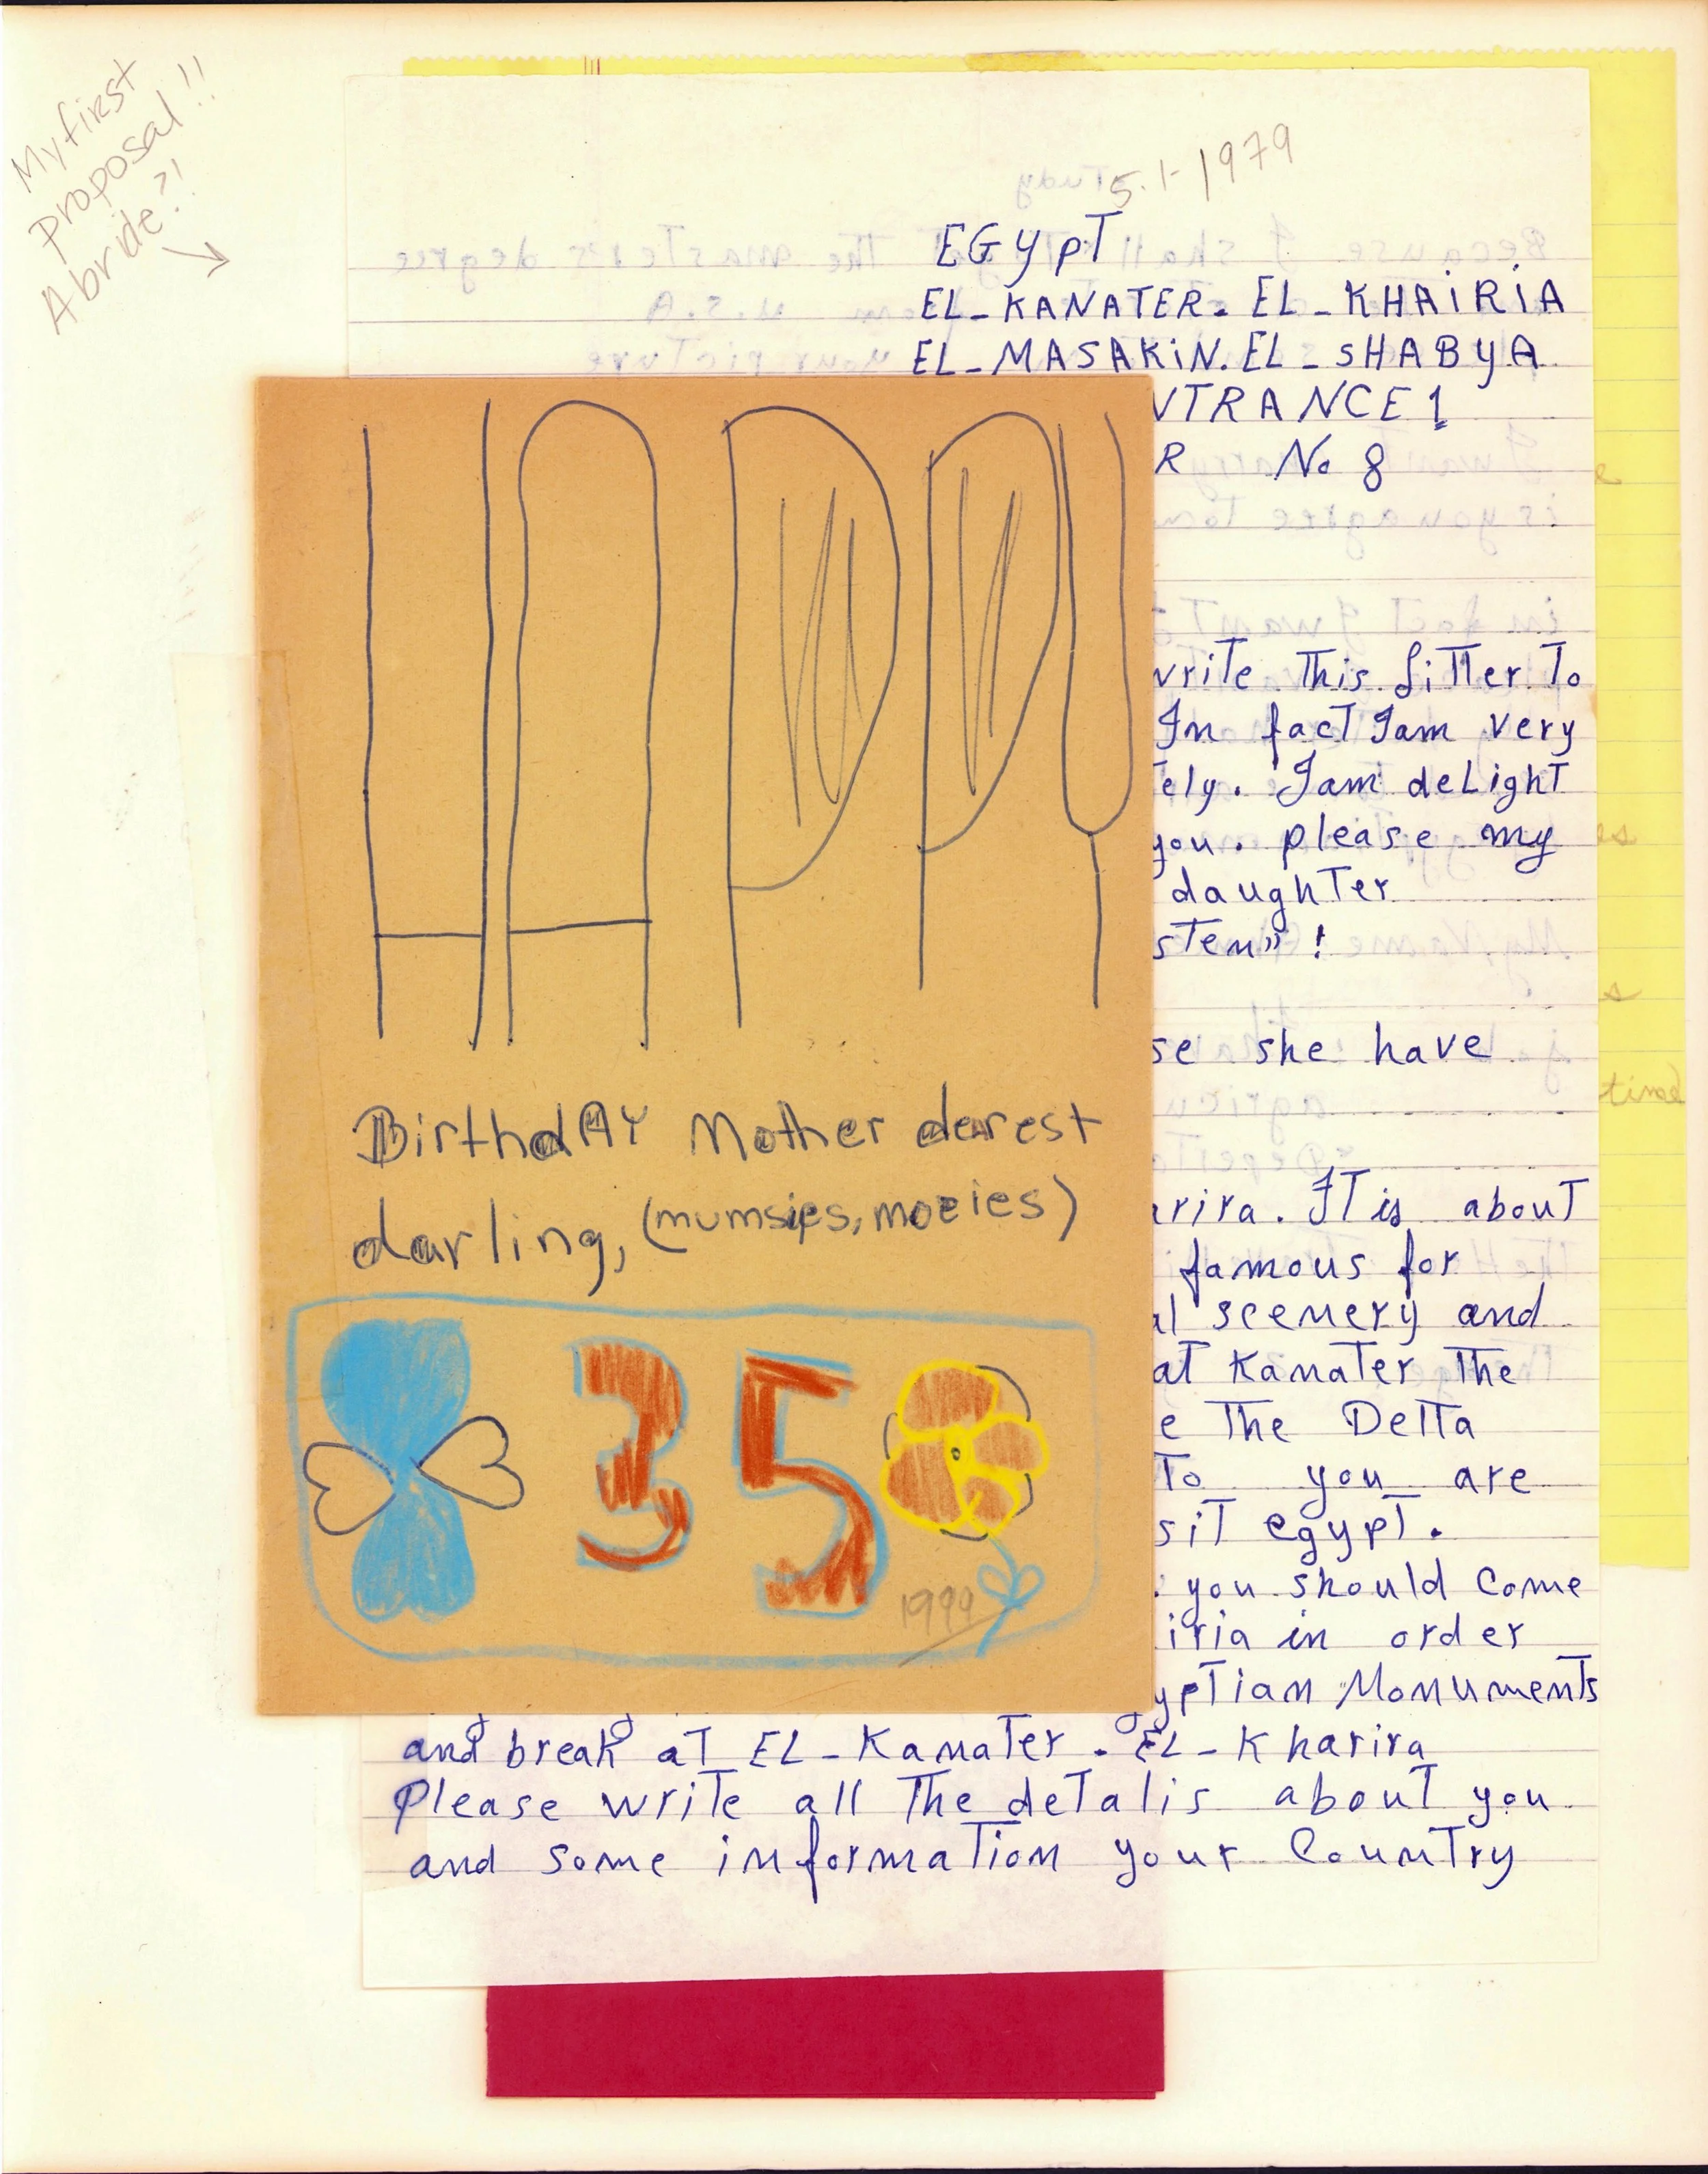 My first
proposal!!
A bride?!
5-1-1979
EGypT
EL_KANATER. EL_KHAiRiA
EL_MASAKiN. EL_SHAByA
NTRANCE 1
R No 8
write This LiTTer To
In facT Iam very
Tely. Iam deLighT
you. please my
daughTer
sTen" !
se she have
arira. IT is abouT
famous for
al scenery and
at KanaTer The
e The DelTa
To you are
siT egypT.
. you should Come
iria in order
ypTian MonumenTs
and break aT EL_KanaTer. EL_Kharira
Please wriTe all The deTalis abouT you
and some informaTion your CounTry
HAPPY
BirthdAY Mother derest
darling, (mumsies, mozies)
35
1999
tinod